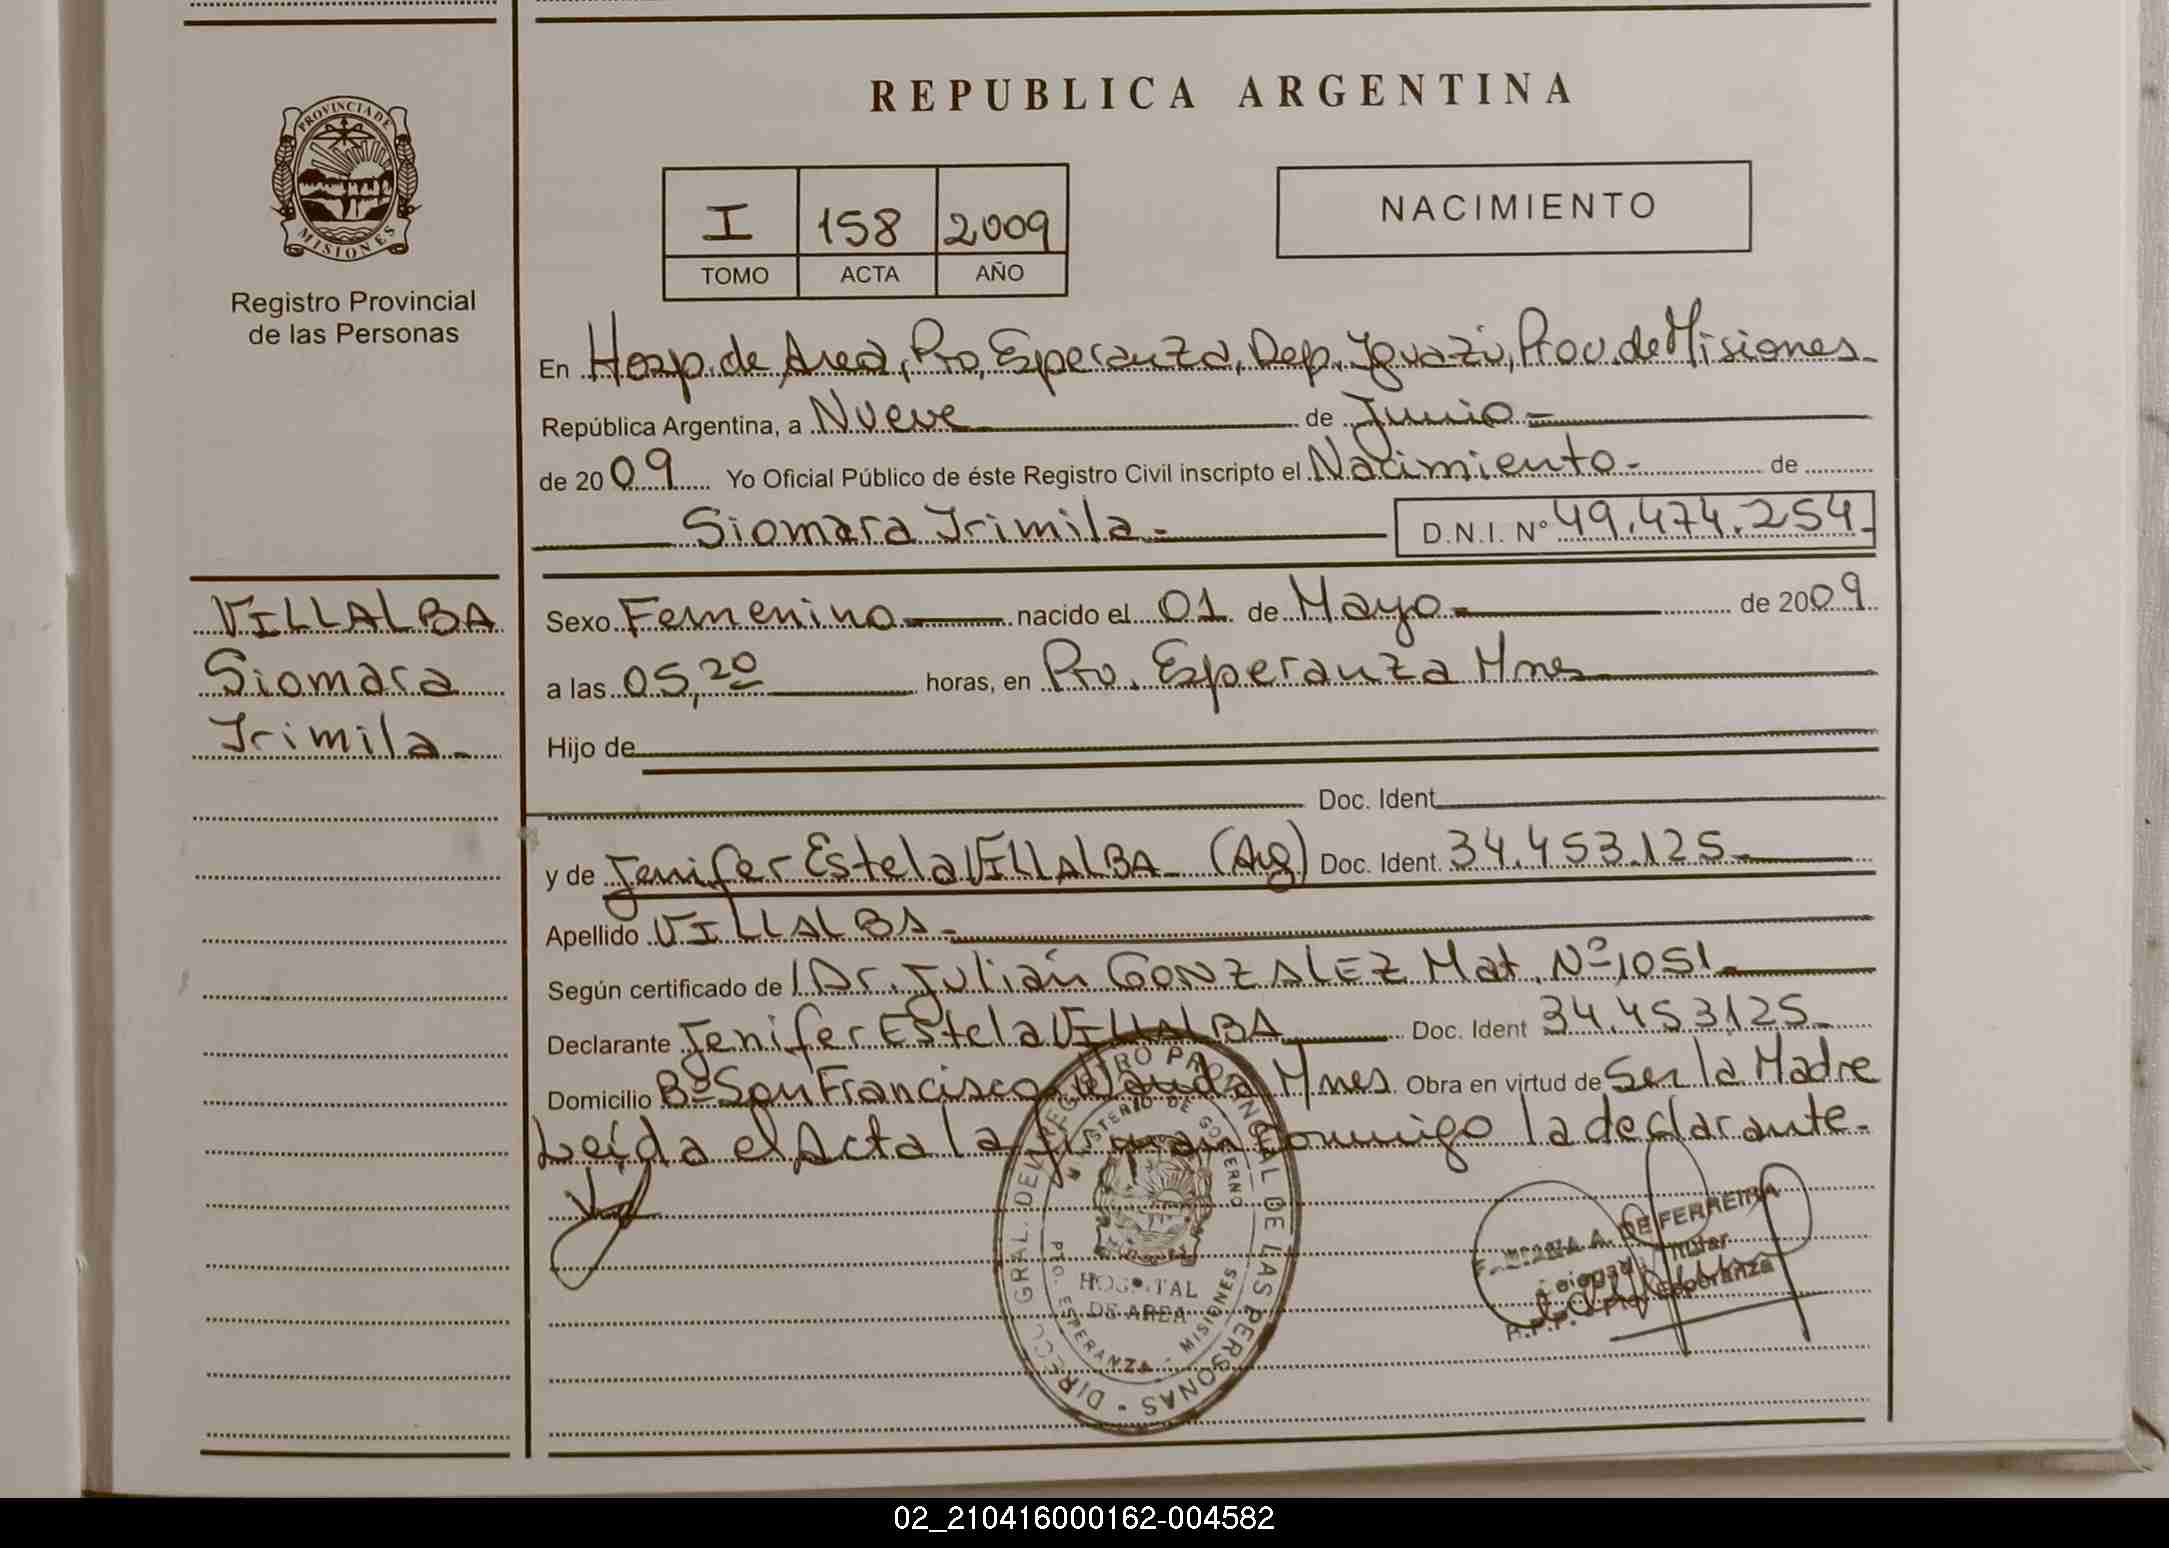 REPUBLICA ARGENTINA
PROVINCIA DE
MISIONES
Registro Provincial
de las Personas
I 158 2009
TOMO ACTA AÑO
NACIMIENTO
En Hosp. de Area, Pto, Esperanza, Dep. Iguazú, Prov. de Misiones
República Argentina, a Nueve de Junio
de 2009 Yo Oficial Público de éste Registro Civil inscripto el Nacimiento - de
Siomara Irimila - D.N.I. Nº 49.474.254
VILLALBA
Siomara
Irimila
Sexo Femenino nacido el 01 de Mayo de 2009
a las 05,20 horas, en Pto. Esperanza Mnes
Hijo de
Doc. Ident
y de Jenifer Estela VILLALBA (Arg) Doc. Ident. 34.453.125
Apellido VILLALBA
Según certificado de Dr. Julián GONZALEZ Mat. Nº 1051
Declarante Jenifer Estela VILLALBA Doc. Ident 34.453.125
Domicilio Bº San Francisco Wanda Mnes Obra en virtud de Ser la Madre
Leída el Acta la firman conmigo la declarante.
DIRECC. GRAL. DEL REGISTRO PROVINCIAL DE LAS PERSONAS
MINISTERIO DE GOBIERNO
HOSPITAL
DE AREA
PTO. ESPERANZA - MISIONES
A. DE FERREIRA
Esperanza
02_210416000162-004582